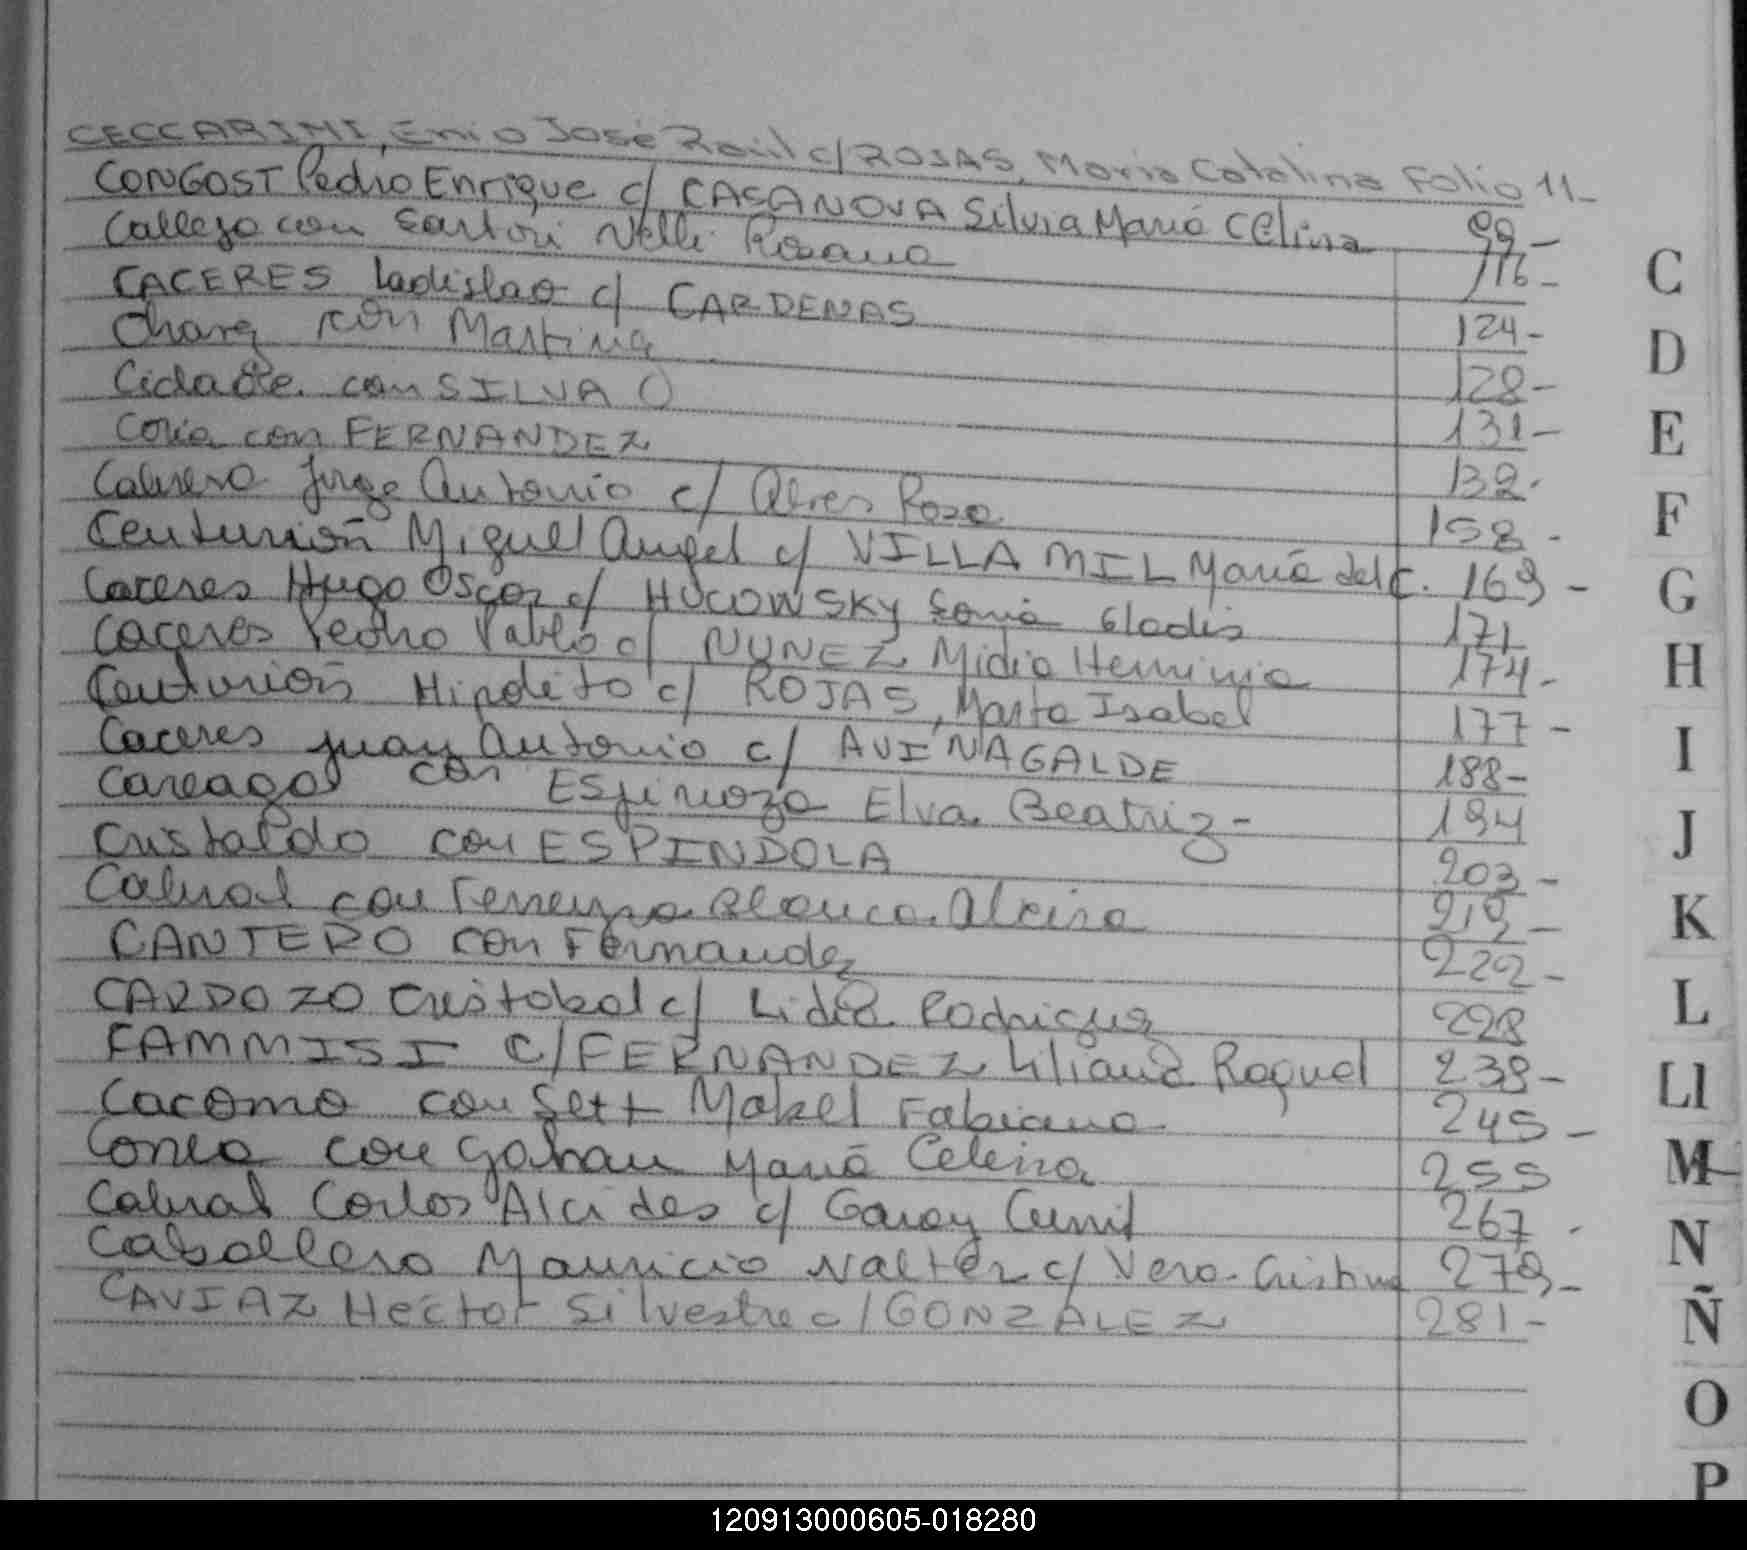 CECCARINI, Enio José Raúl c/ ROJAS, Maria Catalina Folio 11-
CONGOST Pedro Enrique c/ CASANOVA Silvia María Celina 99-
Callejo con Sartori Nelli Rosana 116-
CACERES Ladislao c/ CARDENAS 124-
Charg con Martina 128-
con SILVA O 131-
Coria con FERNANDEZ 132-
Cabrera Jorge Antonio c/ Alves Rosa 158-
Centurión Miguel Angel c/ VILLAMIL María del C. 169-
Caceres Hugo Oscar c/ HUCOWSKY Sonia Gladis 171
Caceres Pedro Pablo c/ NUNEZ Midia Herminia 174-
Centurión Hipolito c/ ROJAS, Marta Isabel 177-
Caceres Juan Antonio c/ AVINAGALDE 188-
Careaga con Espinoza Elva Beatriz- 194
Cristaldo con ESPINDOLA 203-
Cabral con Ferreyra Blanca Alcira 219-
CANTERO con Fernandez 222-
CARDOZO Cristobal c/ Lidia Rodriguez 228
CAMMISI C/ FERNANDEZ Liliana Raquel 238-
Cacomo con Sett Mabel Fabiana 245-
Correa con Gahan María Celeina 255
Cabral Carlos Alcides c/ Garay 267-
Caballero Mauricio Walter c/ Vera Cristina 279-
CAVIAZ Hector Silvestre c/ GONZALEZ 281-
C
D
E
F
G
H
I
J
K
L
Ll
M
N
Ñ
O
P
120913000605-018280